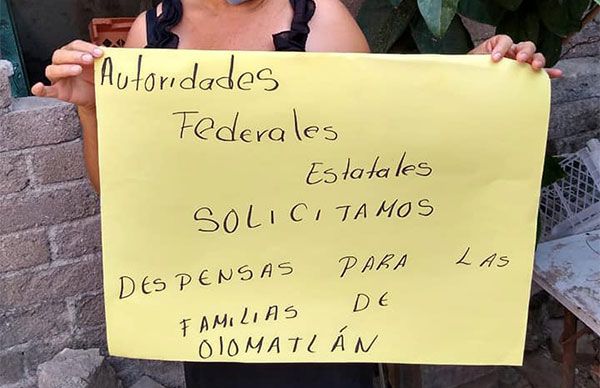 Autoridades
Federales
Estatales
SOLICITAMOS
DESPENSAS PARA LAS
FAMILIAS DE
OIOMATLÁN